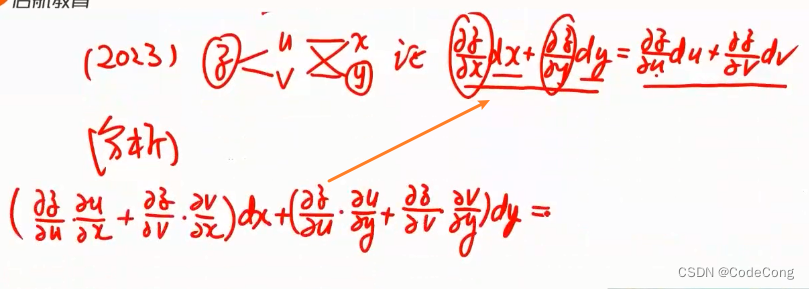 启航教育
(2023) z u v x y 证 ∂z/∂x dx + ∂z/∂y dy = ∂z/∂u du + ∂z/∂v dv
[分析]
(∂z/∂u · ∂u/∂x + ∂z/∂v · ∂v/∂x) dx + (∂z/∂u · ∂u/∂y + ∂z/∂v · ∂v/∂y) dy =
CSDN @CodeCong